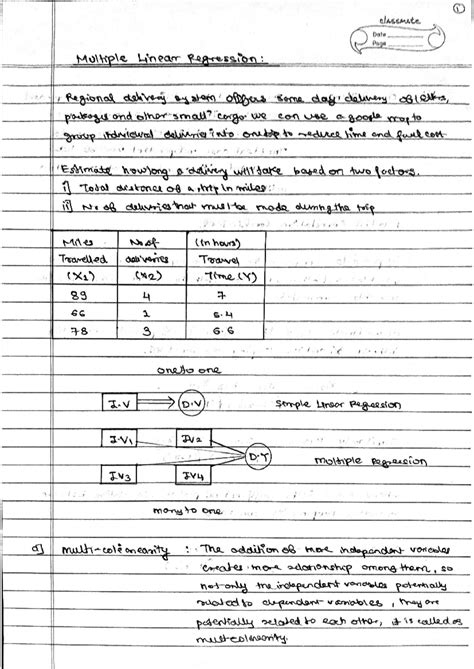 1
classmate
Date
Page
Multiple Linear Regression:
Regional delivery system offers same day delivery of letters,
packages and other small cargo we can use a google map to
group individual deliveries into one trip to reduce time and fuel cost
Estimate how long a delivery will take based on two factors.
i] Total distance of a trip in miles
ii] No of deliveries that must be made during the trip
Miles No of (in hours)
Travelled deliveries Travel
(X1) (X2) Time (Y)
89 4 7
66 1 6.4
78 3 6.6
one to one
I.V D.V Simple Linear Regression
I.V1 IV2
D.V Multiple Regression
IV3 IV4
many to one
a] multi-colinearity : The addition of more independent variables
creates more relationship among them, so
not only the independent variables potentially
related to dependent variables, they are
potentially related to each other, it is called as
multicolinearity.